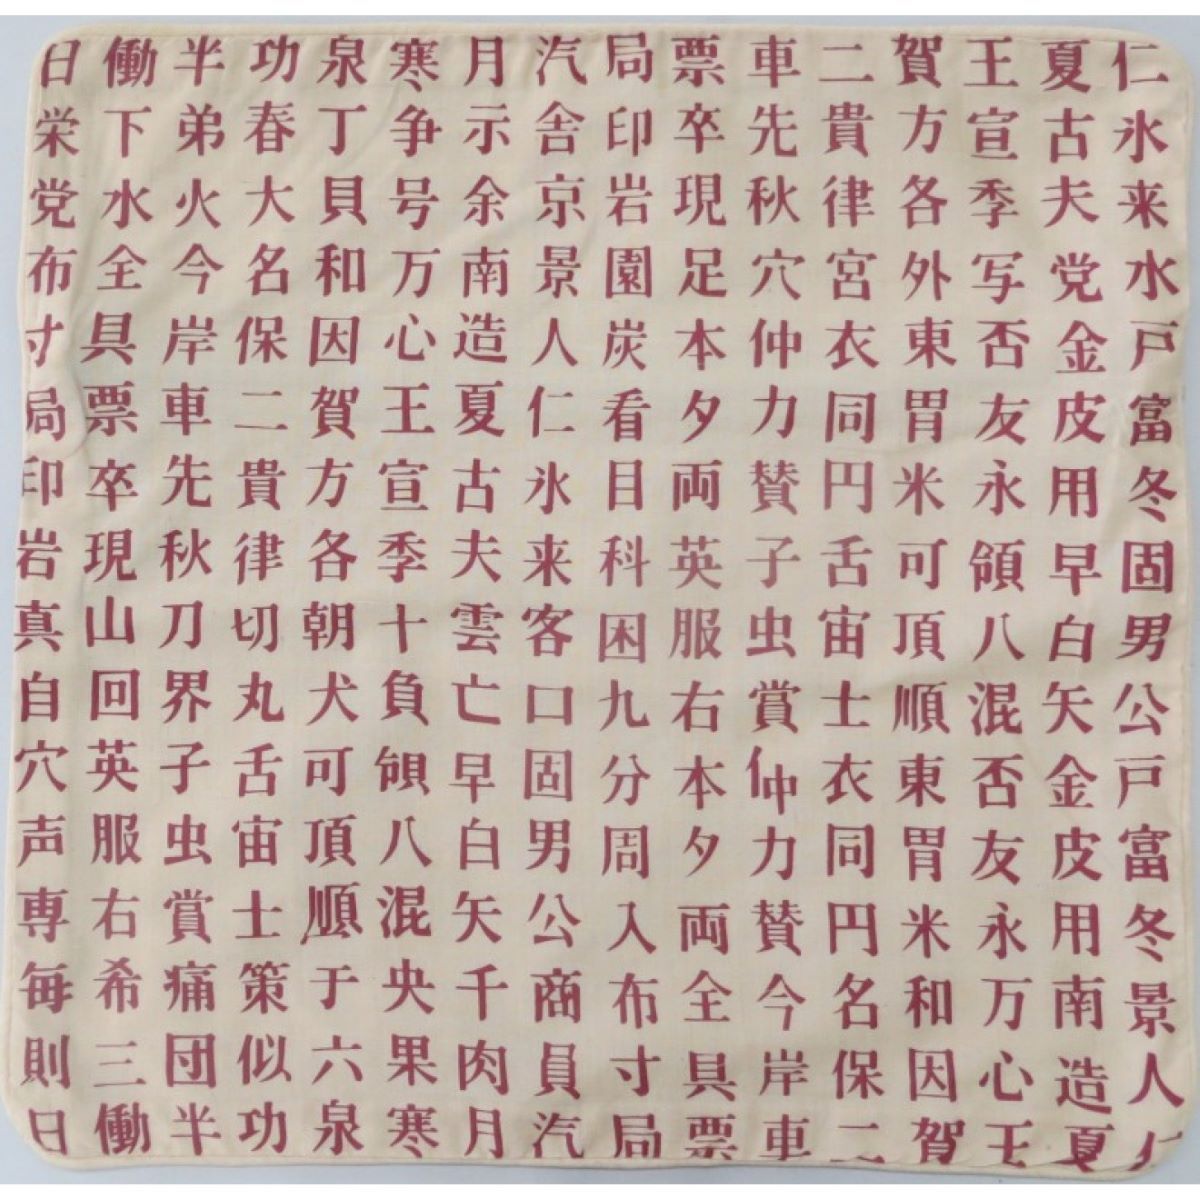 日働半功泉寒月汽局票車二賀王夏仁
栄下弟春丁争示舎印卒先貴方宣古氷
党水火大貝号余京岩現秋律各季夫来
布全今名和万南景園足穴宮外写党水
寸具岸保因心造人炭本仲衣東否金戸
局票車二賀王夏仁看夕力同胃友皮富
印卒先貴方宣古氷目両賛円米永用冬
岩現秋律各季夫来科英子舌可領早固
真山刀切朝十雲客困服虫宙頂八白男
自回界丸犬負亡口九右賞士順混矢公
穴英子舌可領早固分本仲衣東否金戸
声服虫宙頂八白男周夕力同胃友皮富
専右賞士順混矢公入両賛円米永用冬
毎希痛策于央千商布全今名和万南景
則三団似六果肉員寸具岸保因心造人
日働半功泉寒月汽局票車二賀王夏仁